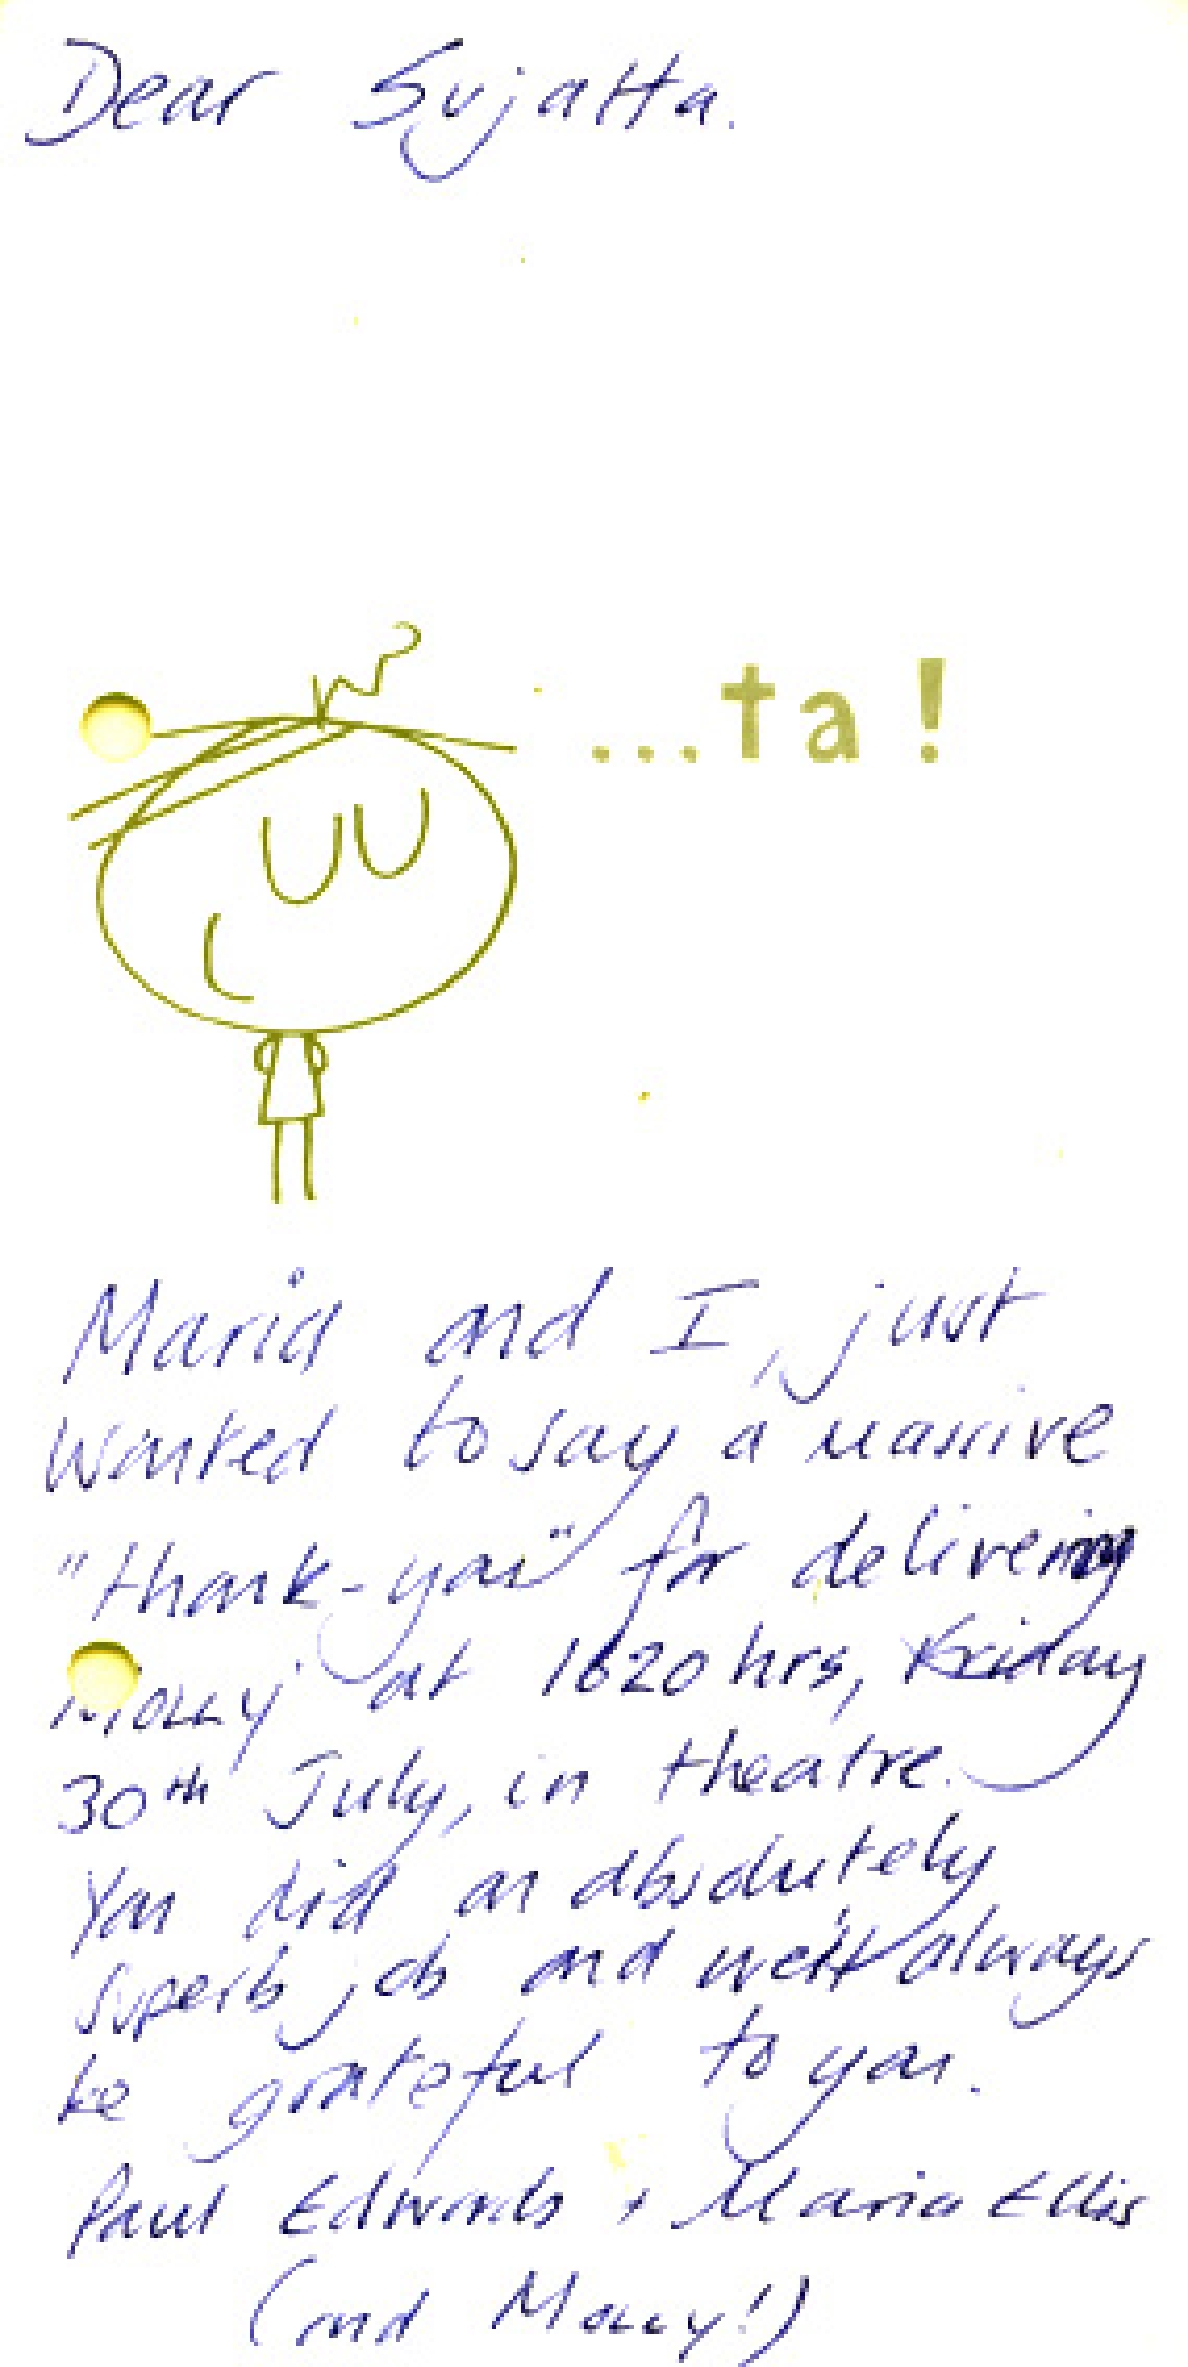 Dear Sujatta.
...ta!
Maria and I, just
wanted to say a massive
"thank-you" for delivering
Molly at 1620 hrs, Friday
30th July, in theatre.
You did an absolutely
superb job and we'll always
be grateful to you.
Paul Edwards + Maria Ellis
(and Molly!)